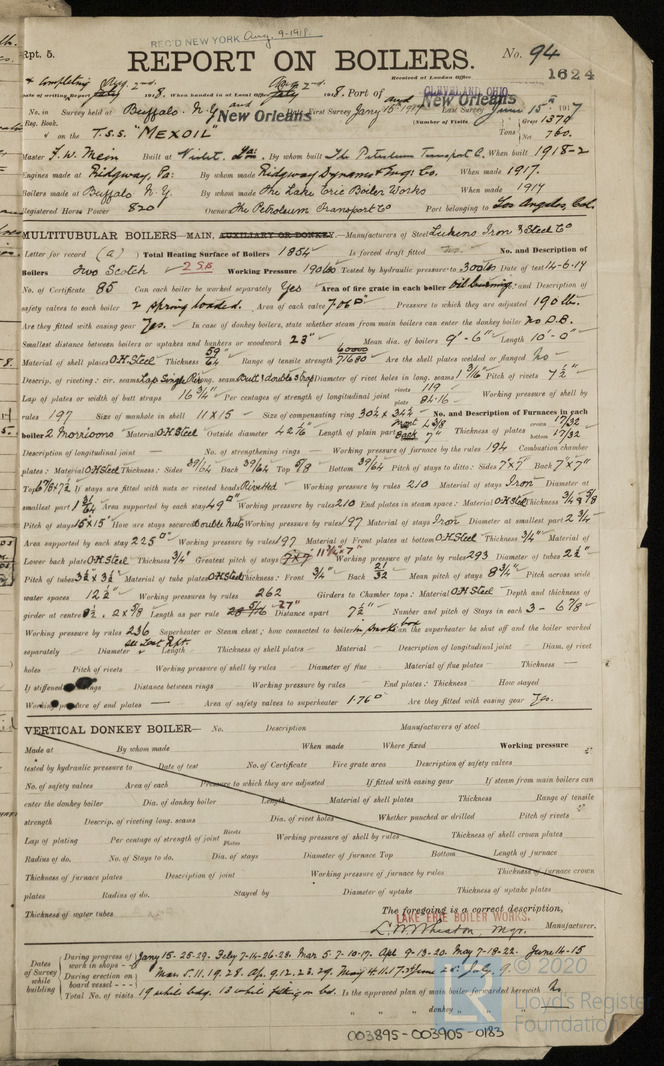 Rpt. 5.
REC'D NEW YORK Aug. 9-1918.
REPORT ON BOILERS.
No. 94
Received at London Office
1624
+ completing Aug. 2nd
Date of writing Report July 1918. When handed in at Local Office Aug. 2nd July 1918. Port of CLEVELAND, OHIO and New Orleans
No. in Survey held at Buffalo. N.Y. and New Orleans Date, First Survey Jany 15th 1917 Last Survey June 15th 1917
Reg. Book. (Number of Visits Gross 1374
on the T.S.S. "MEXOIL" Tons Net 760.
Master F. W. Mein Built at Violet. La: By whom built The Petroleum Transport Co. When built 1918-2
Engines made at Ridgway, Pa: By whom made Ridgway Dynamo & Eng: Co. When made 1917.
Boilers made at Buffalo N.Y. By whom made The Lake Erie Boiler Works When made 1917
Registered Horse Power 820 Owners The Petroleum Transport Co Port belonging to Los Angeles, Cal.
MULTITUBULAR BOILERS—MAIN, AUXILIARY OR DONKEY.—Manufacturers of Steel Lukens Iron & Steel Co
Letter for record (a) Total Heating Surface of Boilers 1854 Is forced draft fitted no. No. and Description of
Boilers Two Scotch 2 SB Working Pressure 190 lbs Tested by hydraulic pressure to 300 lbs Date of test 14-6-17
No. of Certificate 85 Can each boiler be worked separately Yes Area of fire grate in each boiler oil burning. No. and Description of
safety valves to each boiler 2 spring loaded. Area of each valve 7.06□" Pressure to which they are adjusted 190 lb.
Are they fitted with easing gear Yes. In case of donkey boilers, state whether steam from main boilers can enter the donkey boiler no D.B.
Smallest distance between boilers or uptakes and bunkers or woodwork 23" Mean dia. of boilers 9'-6" Length 10'-0"
Material of shell plates O.H. Steel Thickness 59/64 Range of tensile strength 60000 71680 Are the shell plates welded or flanged no
Descrip. of riveting: cir. seams Lap Single Riv. long. seams Butt & double Strap Diameter of rivet holes in long. seams 1 3/16" Pitch of rivets 7 1/2"
Lap of plates or width of butt straps 16 3/4" Per centages of strength of longitudinal joint rivets 119 plate 84.16 Working pressure of shell by
rules 197 Size of manhole in shell 11 x 15 Size of compensating ring 30 1/2 x 34 1/2 No. and Description of Furnaces in each
boiler 2 Morrisons Material O.H. Steel Outside diameter 42 1/16" Length of plain part front 4 3/8 Back 7" Thickness of plates crown 17/32 bottom 17/32
Description of longitudinal joint — No. of strengthening rings — Working pressure of furnace by the rules 194 Combustion chamber
plates: Material O.H. Steel Thickness: Sides 39/64 Back 39/64 Top 5/8 Bottom 39/64 Pitch of stays to ditto: Sides 7" x 7" Back 7" x 7"
Top 6 7/8 x 7 1/2 If stays are fitted with nuts or riveted heads Rivetted Working pressure by rules 210 Material of stays Iron Diameter at
smallest part 1 31/64 Area supported by each stay 49□" Working pressure by rules 210 End plates in steam space: Material O.H. Steel Thickness 3/4 & 5/8
Pitch of stays 15 x 15" How are stays secured double nuts Working pressure by rules 197 Material of stays Iron Diameter at smallest part 2 3/4"
Area supported by each stay 225□" Working pressure by rules 197 Material of Front plates at bottom O.H. Steel Thickness 3/4" Material of
Lower back plate O.H. Steel Thickness 3/4" Greatest pitch of stays 7 x 9 11 3/4 x 7" Working pressure of plate by rules 293 Diameter of tubes 2 1/2"
Pitch of tubes 3 1/2 x 3 1/2 Material of tube plates O.H. Steel Thickness: Front 3/4" Back 21/32 Mean pitch of stays 8 3/4" Pitch across wide
water spaces 12 1/2" Working pressures by rules 262 Girders to Chamber tops: Material O.H. Steel Depth and thickness of
girder at centre 8 1/2. 2 x 5/8 Length as per rule 28 5/16 27" Distance apart 7 1/2" Number and pitch of Stays in each 3 - 6 7/8"
Working pressure by rules 236 Superheater or Steam chest; how connected to boiler in smoke box Can the superheater be shut off and the boiler worked
See Last Rpt.
separately — Diameter Length Thickness of shell plates — Material — Description of longitudinal joint — Diam. of rivet
holes — Pitch of rivets — Working pressure of shell by rules — Diameter of flue — Material of flue plates — Thickness —
If stiffened rings Distance between rings — Working pressure by rules — End plates: Thickness — How stayed
Working pressure of end plates — Area of safety valves to superheater 1.76□" Are they fitted with easing gear Yes.
VERTICAL DONKEY BOILER— No. Description Manufacturers of steel
Made at By whom made When made Where fixed Working pressure
tested by hydraulic pressure to Date of test No. of Certificate Fire grate area Description of safety valves
No. of safety valves Area of each Pressure to which they are adjusted If fitted with easing gear If steam from main boilers can
enter the donkey boiler Dia. of donkey boiler Length Material of shell plates Thickness Range of tensile
strength Descrip. of riveting long. seams Dia. of rivet holes Whether punched or drilled Pitch of rivets
Lap of plating Per centage of strength of joint Rivets Plates Working pressure of shell by rules Thickness of shell crown plates
Radius of do. No. of Stays to do. Dia. of stays Diameter of furnace Top Bottom Length of furnace
Thickness of furnace plates Description of joint Working pressure of furnace by rules Thickness of furnace crown
plates Radius of do. Stayed by Diameter of uptake Thickness of uptake plates
Thickness of water tubes
The foregoing is a correct description,
LAKE ERIE BOILER WORKS.
L. W. Wheaton, Mgr. Manufacturer.
Dates of Survey while building
During progress of work in shops - - Jany 15-25-29. Feby 7-14-26-28. Mar 5. 7-10-17. Apl 9-13-20. May 7-18-22. June 14-15
During erection on board vessel - - - Mar. 5. 11. 19. 28. Ap. 9. 12. 23. 29. May 4. 11. 17. June 25. July 9.
Total No. of visits 19 while bdg. 13 while fitting on bd. Is the approved plan of main boiler forwarded herewith No
" " " donkey " " "
© 2020
Lloyd's Register
Foundation
003895-003905-0183